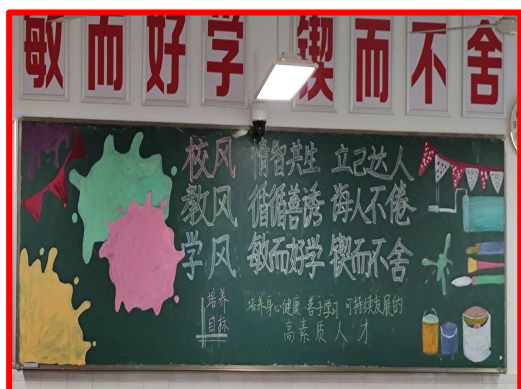 敏而好学 锲而不舍
校风 情智共生 立己达人
教风 循循善诱 诲人不倦
学风 敏而好学 锲而不舍
培养目标 培养身心健康 善于学习 可持续发展的
高素质人才